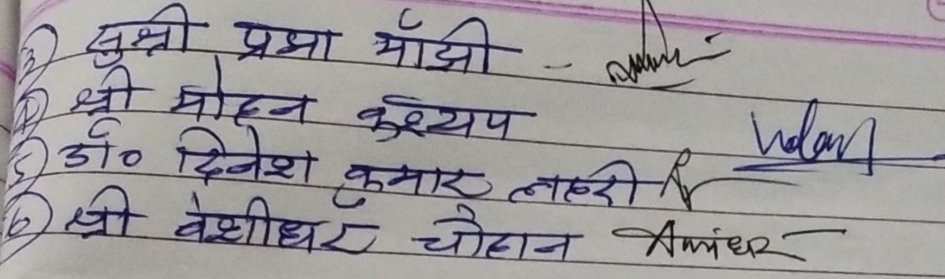 3) सुश्री प्रभा माँझी -
4) श्री मोहन कश्यप
5) डॉ० दिनेश कुमार लहरी
6) श्री बंशीधर चौहान